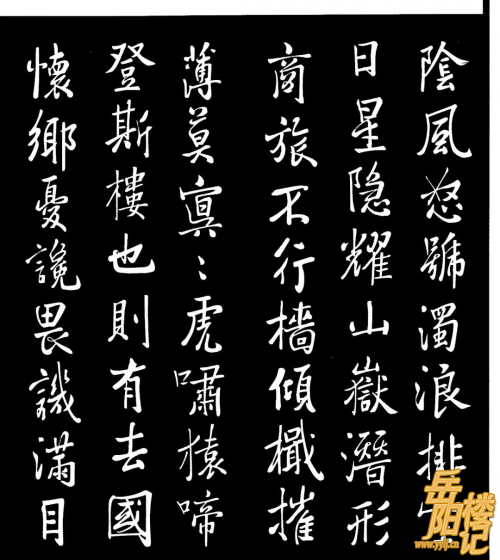 陰風怒號濁浪排空
日星隐耀山嶽潛形
商旅不行檣傾檝摧
薄莫冥〻虎嘯猿啼
登斯樓也則有去國
懷鄉憂讒畏譏滿目
岳阳楼记